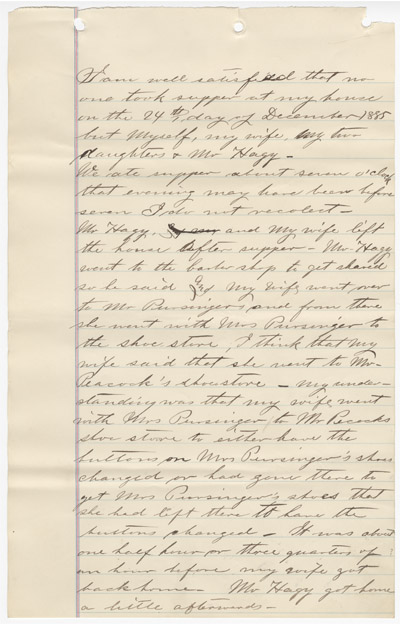 I am well satisfied that no
one took supper at my house
on the 24th day of December 1885
but Myself, my wife, My two
daughters & Mr Hagy –
We ate supper about seven o'clock
that evening may have been before
seven I do not recolect –
Mr Hagy, and My wife left
the house After supper – Mr Hagy
went to the barber shop to get shaved
so he said and My Wife went over
to Mr Pursinger's, and from there
she went with Mrs Pursinger to
the shoe store, I think that my
wife said that she went to Mr
Peacock's shoestore – my under-
standing was that my wife went
with Mrs Pursinger to Mr Pecocks
shoe store to either have the
buttons on Mrs Pursinger's shoes
changed or had gone there to
get Mrs Pursinger's shoes that
she had left there to have the
buttons changed – It was about
one half hour or three quarters of
an hour before my wife got
back home – Mr Hagy got home
a little afterwards –